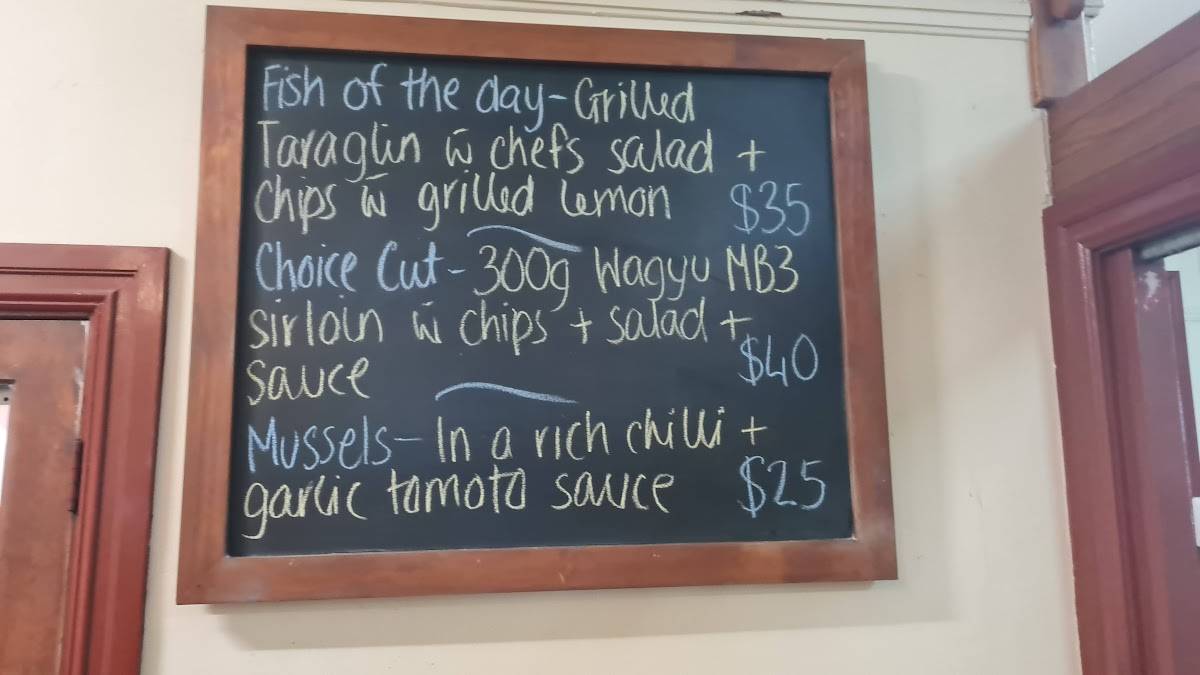 Fish of the day - Grilled
Taraglin w̄ chefs salad +
chips w̄ grilled lemon $35
Choice Cut - 300g Wagyu MB3
sirloin w̄ chips + salad +
sauce $40
Mussels - In a rich chilli +
garlic tomato sauce $25